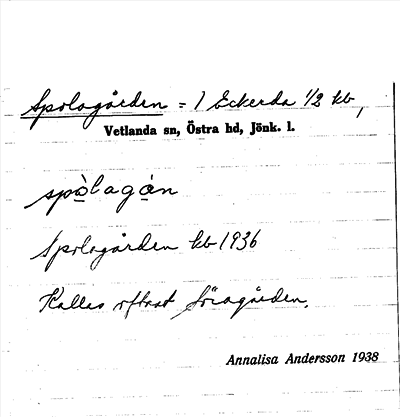 Spolagården = 1 Eckerda 1/2 kb,
Vetlanda sn, Östra hd, Jönk. l.
spo̱̊̀lagå̱n
Spolagården kb 1936
Kallas oftast Söragården.
Annalisa Andersson 1938